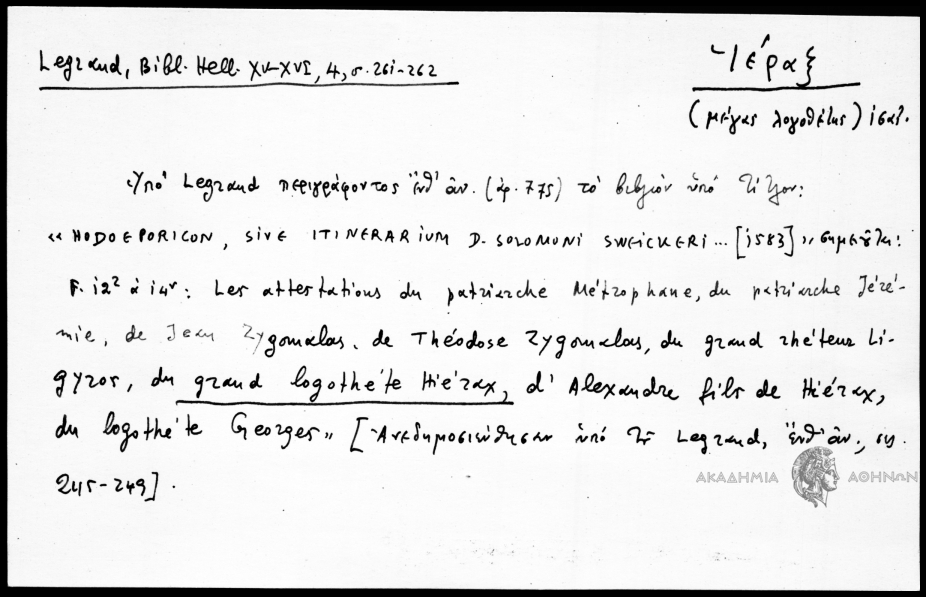 Legrand, Bibl. Hell. XV-XVI, 4, σ. 261-262
Ἱέραξ
(μέγας λογοθέτης) ις΄ αἰ.
Ὑπό Legrand περιγράφοντος ἔνθ' ἀν. (ἀρ. 775) τό βιβλίον ὑπό τίτλον:
«HODOEPORICON, SIVE ITINERARIUM D. SOLOMONI SWEICKERI... [1583]» σημειοῦται:
F. 12² à 14ʳ: Les attestations du patriarche Métrophane, du patriarche Jéré-
mie, de Jean Zygomalas, de Théodose Zygomalas, du grand rhéteur Li-
gyros, du grand logothète Hiérax, d'Alexandre fils de Hiérax,
du logothète Georges» [Ἀνεδημοσιεύθησαν ὑπό τοῦ Legrand, ἔνθ' ἀν., σσ.
245-249].
ΑΚΑΔΗΜΙΑ ΑΘΗΝΩΝ